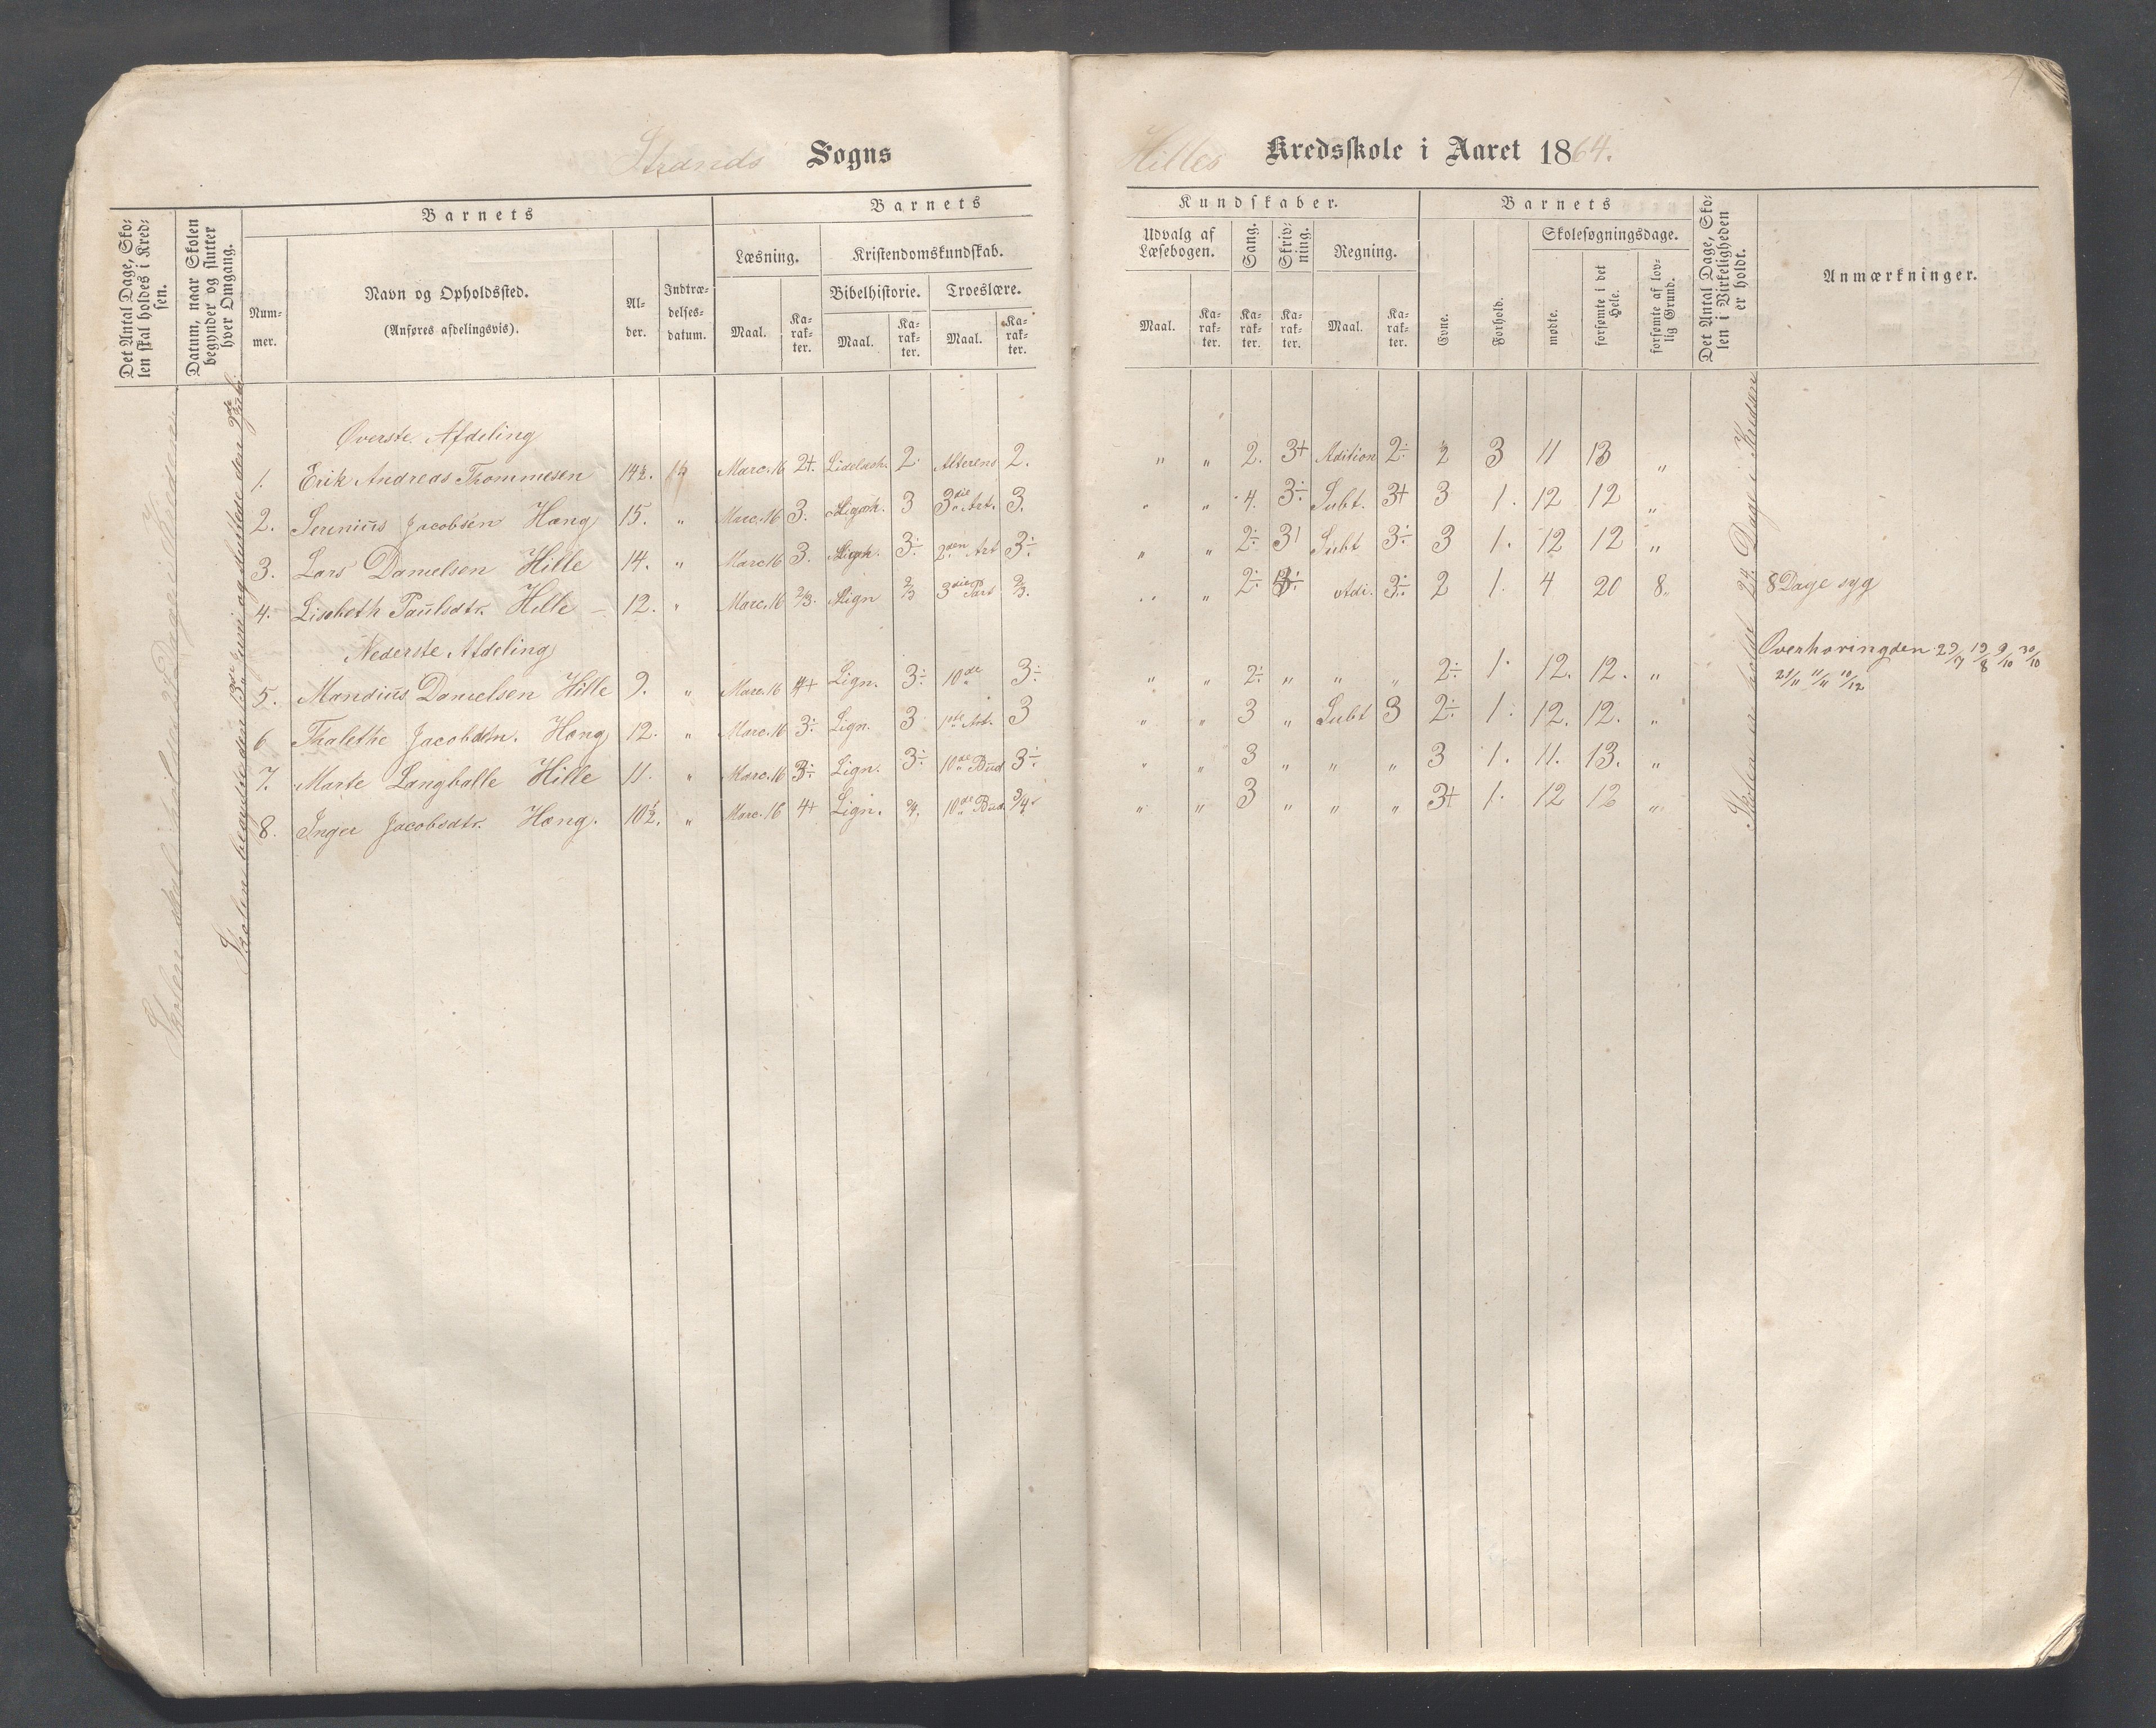 Strands Sogns
Hilles Kredsskole i Aaret 1864.
Det Antal Dage, Sko-
len skal holdes i Kred-
sen.
Datum, naar Skolen
begynder og slutter
hver Omgang.
Barnets
Num-
mer.
Navn og Opholdssted.
(Anføres afdelingsvis).
Al-
der.
Indtræ-
delses-
datum.
Barnets
Læsning.
Maal.
Ka-
rak-
ter.
Kristendomskundskab.
Bibelhistorie.
Maal.
Ka-
rak-
ter.
Troeslære.
Maal.
Ka-
rak-
ter.
Kundskaber.
Udvalg af
Læsebogen.
Maal.
Ka-
rak-
ter.
Sang.
Ka-
rak-
ter.
Skriv-
ning.
Ka-
rak-
ter.
Regning.
Maal.
Ka-
rak-
ter.
Barnets
Evne.
Forhold.
Skolesøgningsdage.
mødte.
forsømte i det
Hele.
forsømte af lov-
lig Grund.
Det Antal Dage, Sko-
len i Virkeligheden
er holdt.
Anmærkninger.
Skolen skal holdes Dage i Kredsen
Skolen begyndte den 13de Juni og sluttede den
Øverste Afdeling
1. Erik Andreas Thommesen 14½. Marc. 16 2+. 2. Alterens 2. " " 2. 3+ Adition 2÷ 2 3 11 13 "
2. Serenius Jacobsen Hæng 15. " Marc. 16 3. 3 3die Art. 3. " " 4. 3÷ Subt. 3+ 3 1. 12 12 "
3. Lars Danielsen Hille 14. " Marc 16 3. 3÷ 2den Art 3÷ " " 2÷ 3 Subt 3÷ 3 1. 12 12 "
4. Lisebeth Paulsdtr. Hille 12. " Marc. 16 2/3. Lign 2/3 3die Part 2/3. " " 2÷ 3÷ Adi. 3÷ 2 1. 4 20 8 " 8 Dage syg
Nederste Afdeling
5. Mandius Danielsen Hille 9. " Marc. 16 4+ Lign. 3÷ 10de 3÷ " " 2÷ " " " 2÷ 1. 12. 12. " Overhøringden 29/7 19/8 9/10 30/10
6 Thalethe Jacobdtr. Hæng 12. " Marc. 16 3÷ Lign. 3 1ste Art. 3 " " 3 " Subt 3 2÷ 1. 12. 12. "
7. Marte Langballe Hille 11. " Marc. 16 3÷ Lign. 3÷ 10de Bud 3÷ " " 3 " " " 3 1. 11. 13. "
8. Inger Jacobsdtr. Hæng. 10½. " Marc. 16 4+ Lign. 10de Bud. 3/4 " " 3 " " " 3+ 1. 12 12 "
Skolen er holdt 24 Dage i Kredsen